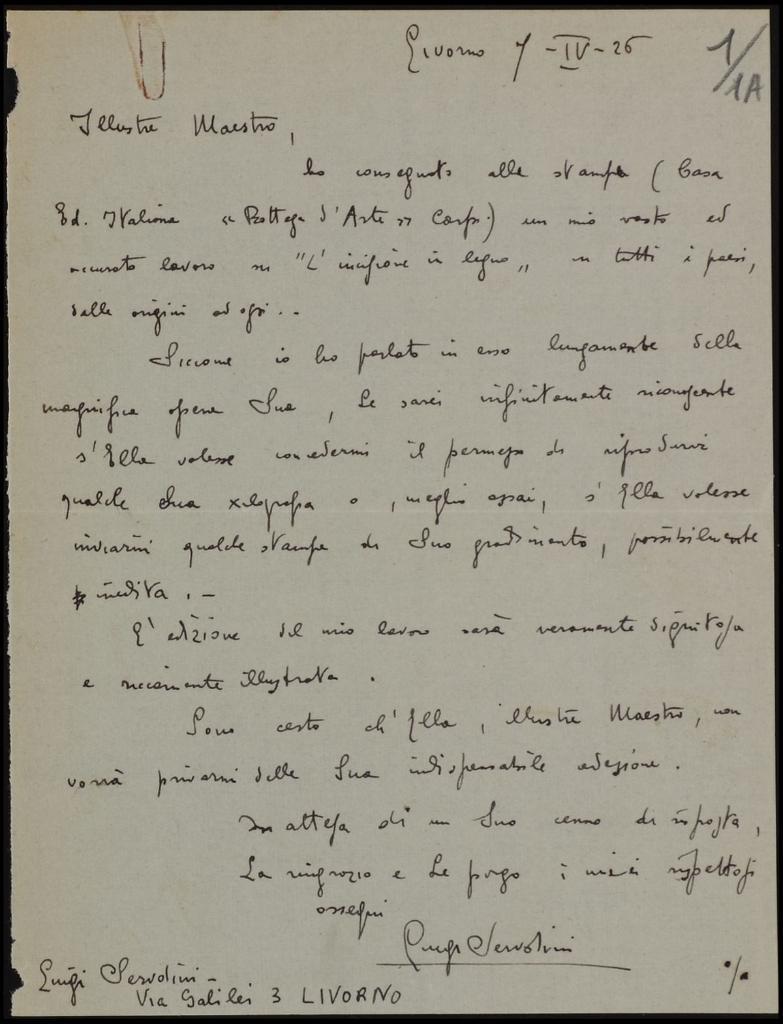 Livorno 7-IV-26
1/1A
Illustre Maestro,
ho consegnato alle stampe (Casa
Ed. Italiana « Bottega d'Arte » ) un mio vasto ed
accurato lavoro su "L'incisione in legno„ in tutti i paesi,
dalle origini ad oggi..
Siccome io ho parlato in esso lungamente della
magnifica opera Sua, Le sarei infinitamente riconoscente
s'Ella volesse concedermi il permesso di riprodurvi
qualche Sua xilografia o, meglio assai, s'Ella volesse
inviarmi qualche stampa di Suo gradimento, possibilmente
inedita.-
L'edizione del mio lavoro sarà veramente dignitosa
e riccamente illustrata.
Sono certo ch'Ella, illustre Maestro, non
vorrà privarmi della Sua indispensabile adesione.
In attesa di un Suo cenno di risposta,
La ringrazio e Le porgo i miei rispettosi
ossequi
Luigi Servolini
Luigi Servolini-
Via Galilei 3 LIVORNO
%